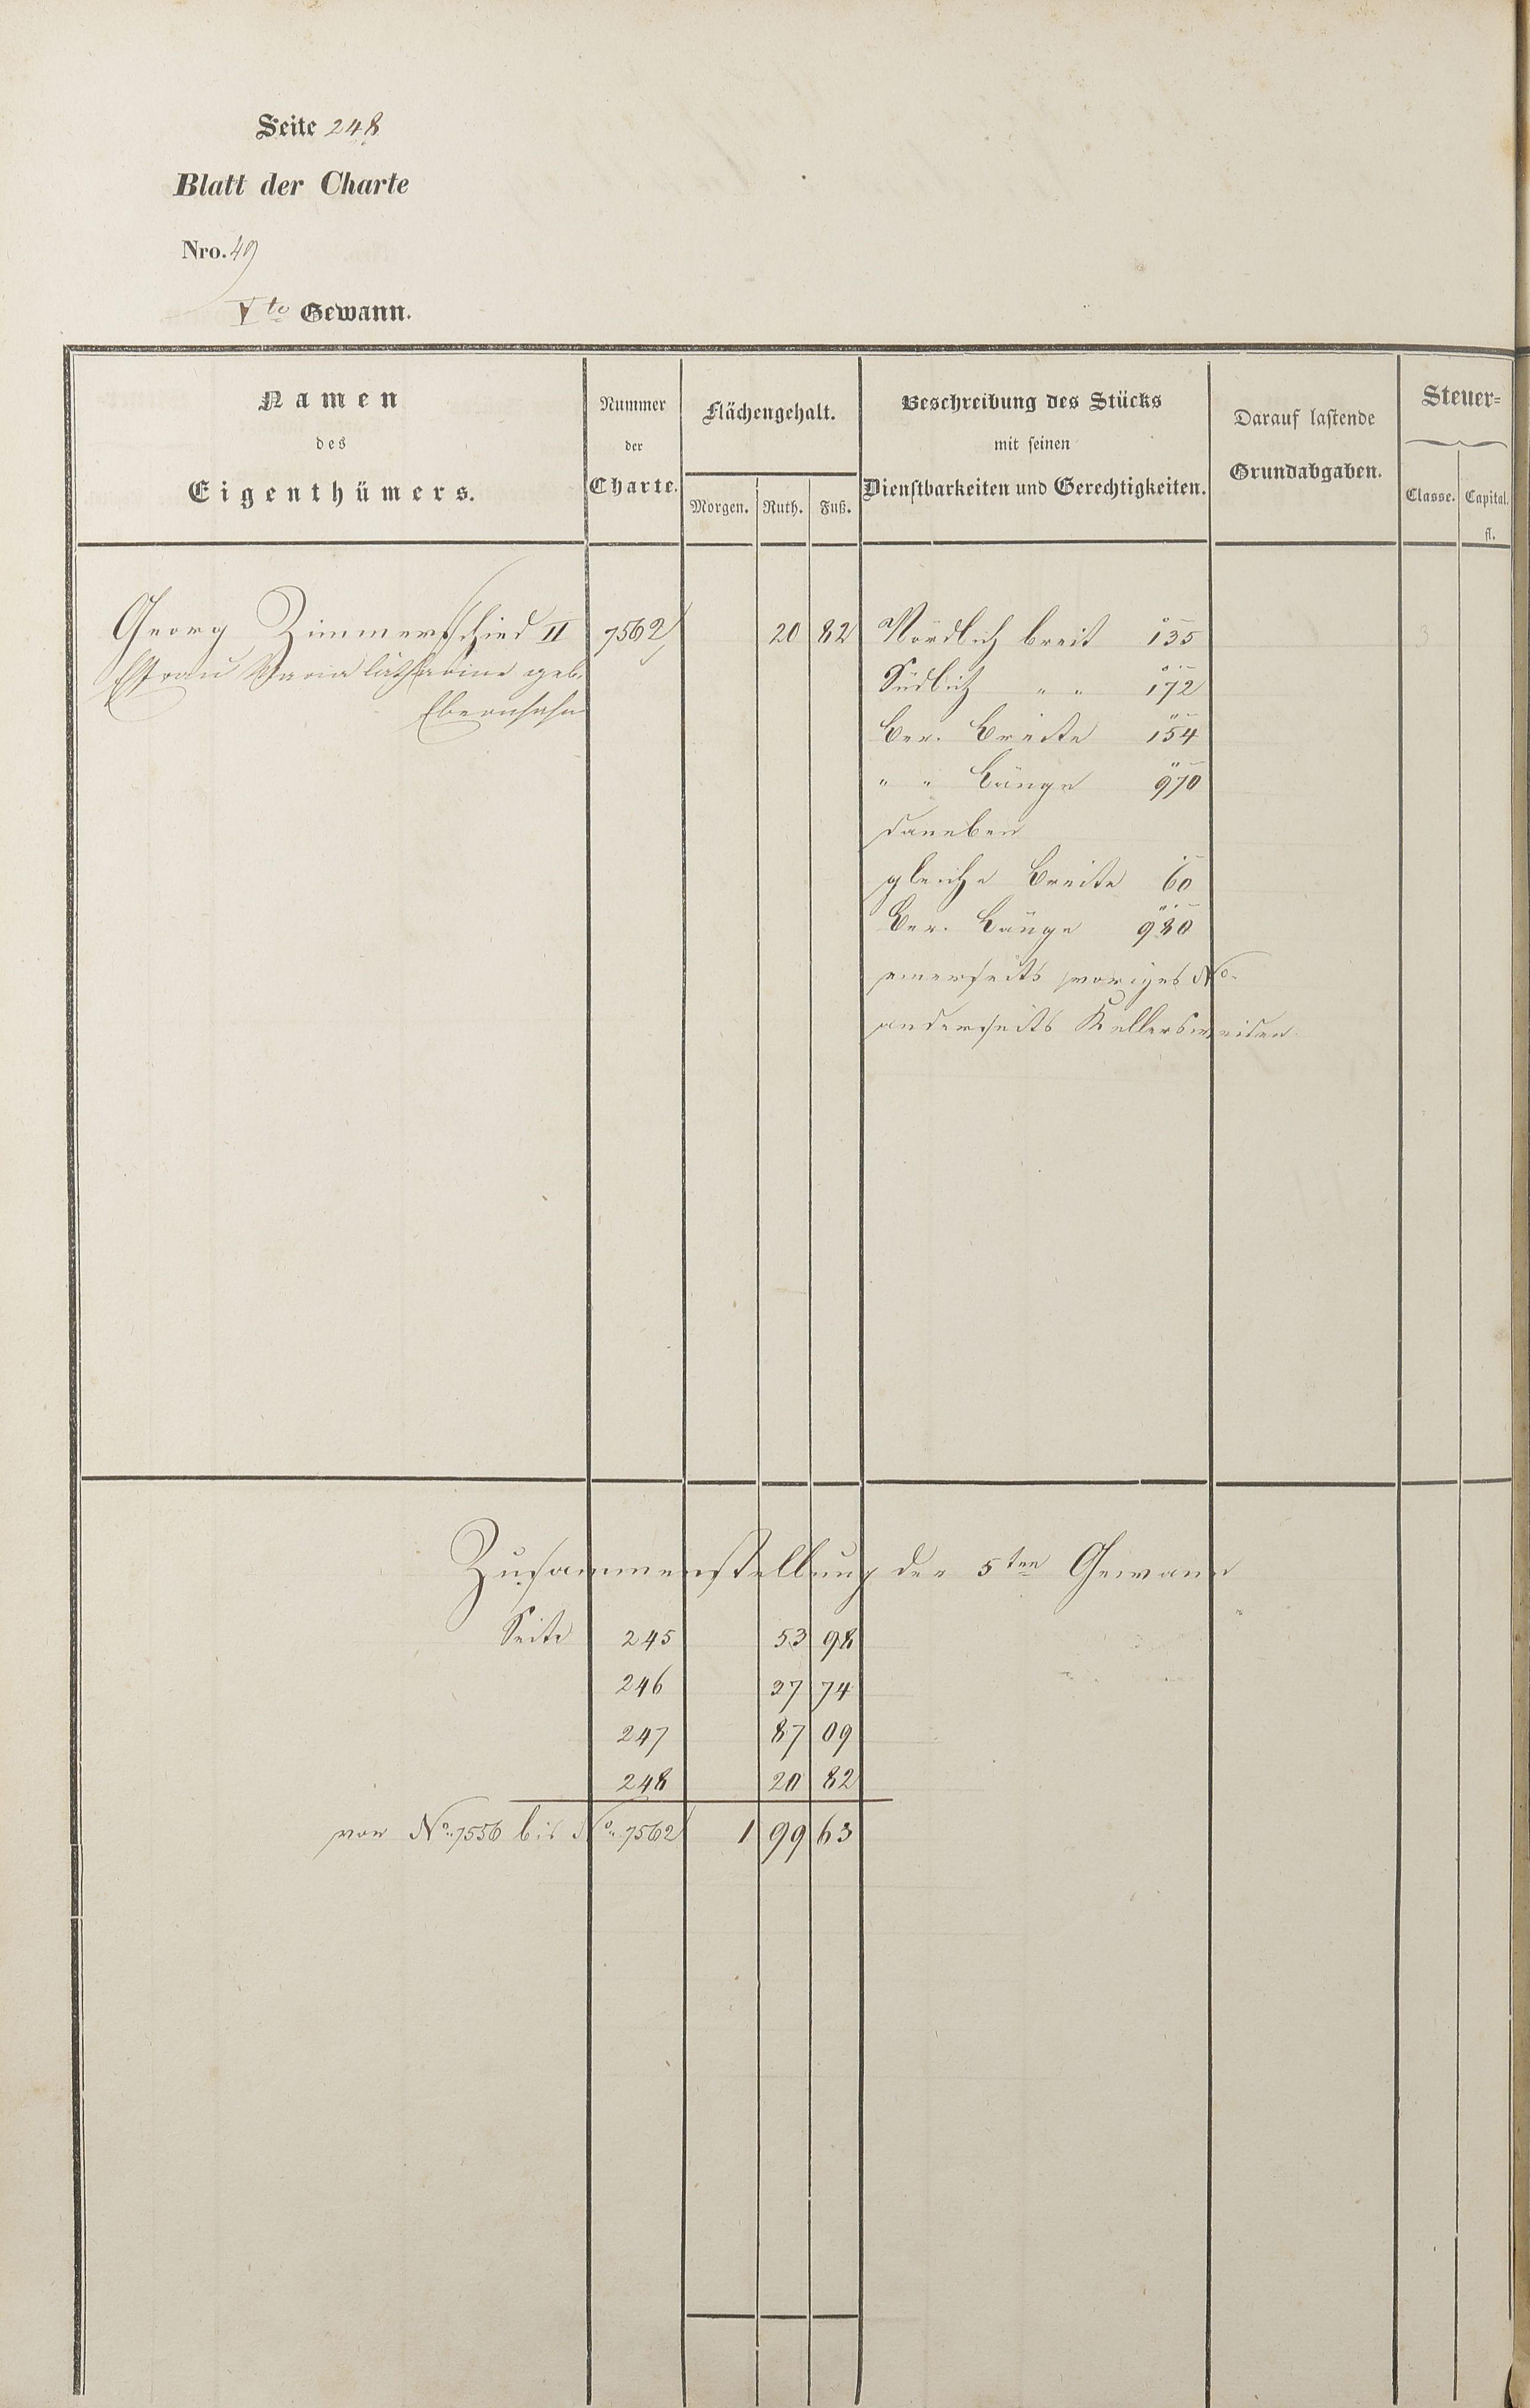 Seite 248
Blatt der Charte
Nro. 49
Vte Gewann.
Namen des Eigenthümers.
Nummer der Charte.
Flächengehalt.
Morgen. Ruth. Fuß.
Beschreibung des Stücks mit seinen Dienstbarkeiten und Gerechtigkeiten.
Darauf lastende Grundabgaben.
Steuer=
Classe. Capital. fl.
Georg Zimmerschied II 7562 20 82 Nördlich breit 135 3
Ehfrau Maria Catharine geb. Südlich " " 172
Ebernhahn Ber. Breite 154
" " Länge 970
daneben
gleiche Breite 60
Ber. Länge 980
einerseits voriges No.
anderseits Kellersweiden
Zusammenstellung der 5ten Gewann
Seite 245 53 98
246 37 74
247 87 09
248 20 82
von No. 7556 bis No. 7562 1 99 63